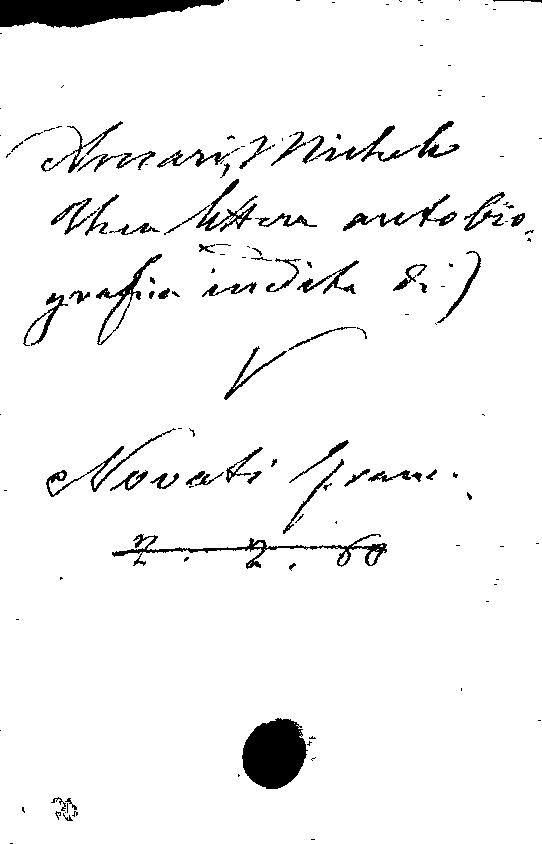 Michele
Una lettera autobio-
grafica inedita di)
V
Novati Franc.
2. 60